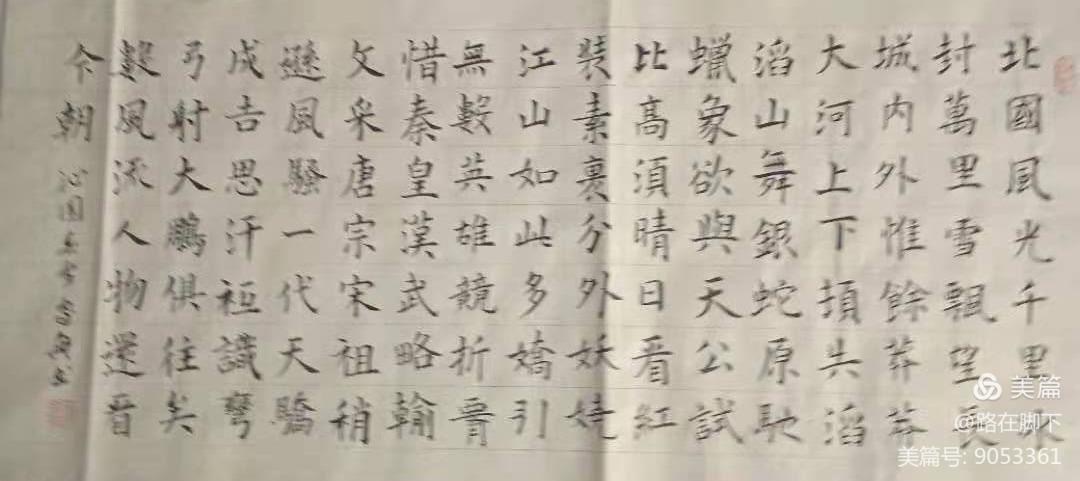 北國風光千里冰
封萬里雪飄望長
城内外惟餘莽莽
大河上下頓失滔
滔山舞銀蛇原馳
蠟象欲與天公試
比高須晴日看紅
裝素裹分外妖嬈
江山如此多嬌引
無數英雄競折
惜秦皇漢武略輸
文采唐宗宋祖稍
遜風騷一代天驕
成吉思汗識彎
弓射大俱往矣
數風流人物還看
今朝 沁園春雪
美篇
@路在脚下
美篇号: 9053361